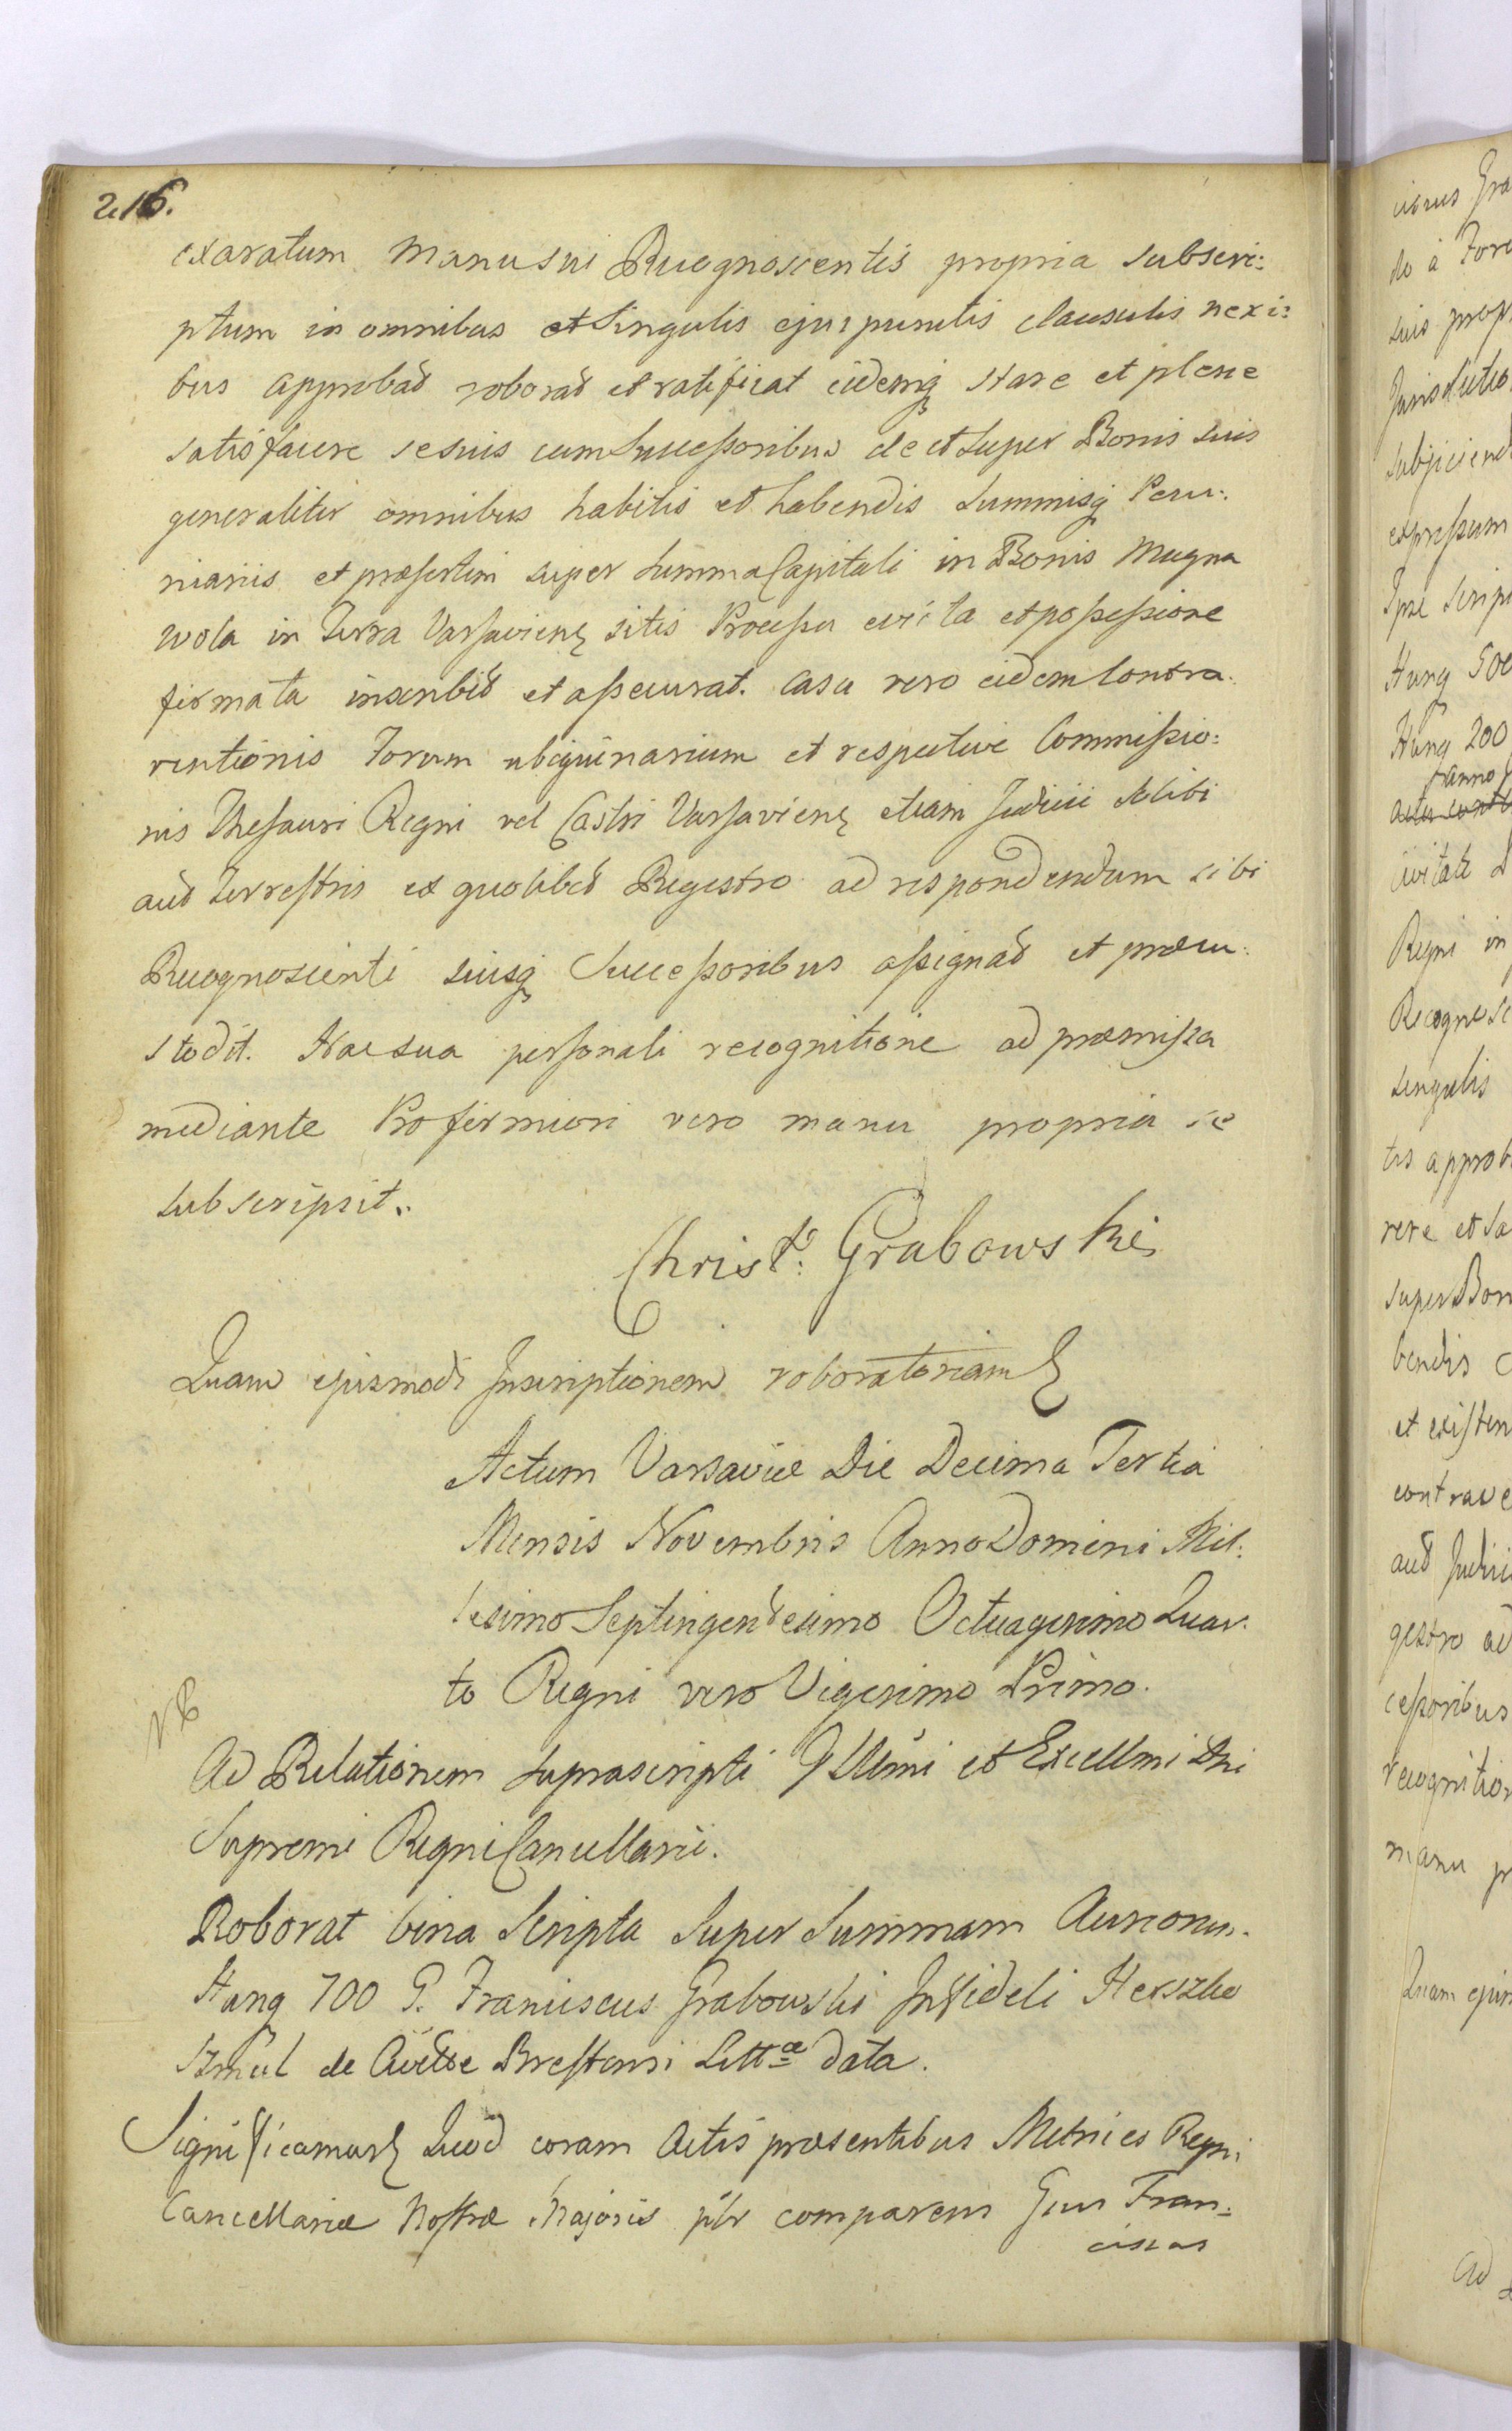 216.
exaratum manu sui Recognoscentis propria subscri:
ptum in omnibus et singulis ejus punctis clausulis nexi:
bus approbat roborat et ratificat eidemq stare et plene
satisfacere se suis cum Successoribus de et super Bonis suis
generaliter omnibus habitis et habendis summisq Pecu:
niariis et præsertim super Summa Capitali in Bonis Magna
Wola in Terra Varsaviens sitis Processu evicta et possessione
firmata inscribit et assecurat. Casu vero eidem Contra:
ventionis Forum ubiquinarium et respective Commissio:
nis Thesauri Regni vel Castri Varsaviens etiam Judicii
aut Terrestris ex quolibet Regestro ad respondendum sibi
Recognoscenti suisq Successoribus assignat et præcu:
stodit. Hac sua personali recognitione ad præmissa
mediante Pro firmiori vero manu propria se
subscripsit.
Christ: Grabowski
Quam ejusmodi Inscriptionem roboratoriam
Actum Varsaviæ Die Decima Tertia
Mensis Novembris Anno Domini Mil:
lesimo Septingentesimo Octuagesimo Quar:
to Regni vero Vigesimo Primo.
NB
Ad Relationem suprascripti Illmi et Excellmi Dni
Supremi Regni Cancellarii.
Roborat bina Scripta super Summam Aureorum
Hung 700 G. Franciscus Grabowski Infideli Herszko
Szmul de Civitte Brestensi Littæ data.
Significamus Quod coram Actis præsentibus Metrices Regni
Cancellariæ Nostræ Majoris pltr comparens Gsus Fran:
ciscus
cisus Gra
do a Foro
suis prop
Jurisdictio
subjiciend
expressum
Ipse scrip
Hung 500
Hung 200
anno
civitate
Regni in
Recognosc
singulis
tis approb
rere et sa
super Bon
bendis
et existen
contrave
aut Judici
gestro ad
cessoribus
recognition
manu pr
Quam ejus
Ad